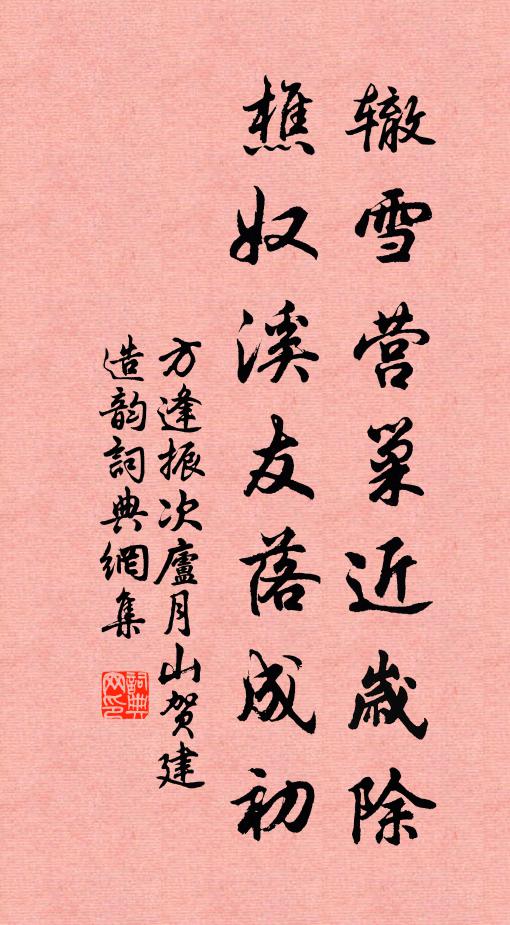 辙雪营巢近歲除
樵奴溪友落成初
方逢振次廬月山贺建
造韵詞典網集
詞典网印